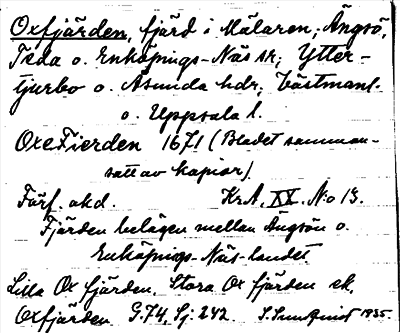 Oxfjärden, fjärd i Mälaren; Ängsö,
Teda o. Enköpings-Näs sk; Ytter-
tjurbo o. Åsunda hdr; Västmanl.
o. Uppsala l.
OxeFierden 1671 (Bladet samman-
satt av kopior).
Förf. akd. Kr.A. XX. N:o 13.
Fjärden belägen mellan Ängsön o.
Enköpings-Näs-landet.
Lilla Ox fjärden, Stora Ox fjärden ek.
Oxfjärden G.74, Sj: 242. S. Sundqvist 1935.